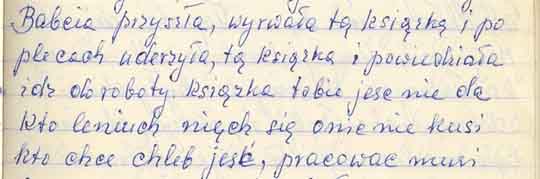 Babcia przyszła, wyrwała tą książką i po
plecach uderzyła, tą książka i powiedziała
idz do roboty. książka tobie jesc nie da
Kto leniuch niech się onie nie kusi
kto chce chleb jeść, pracować musi